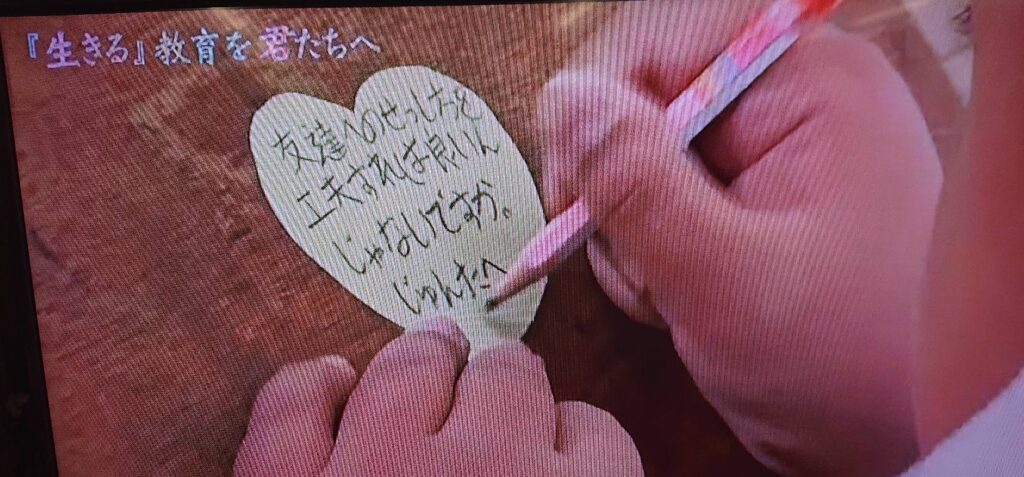 『生きる』教育を君たちへ
友達へのせっしかたを
工夫すれば良いん
じゃないですか。
じゅんたへ